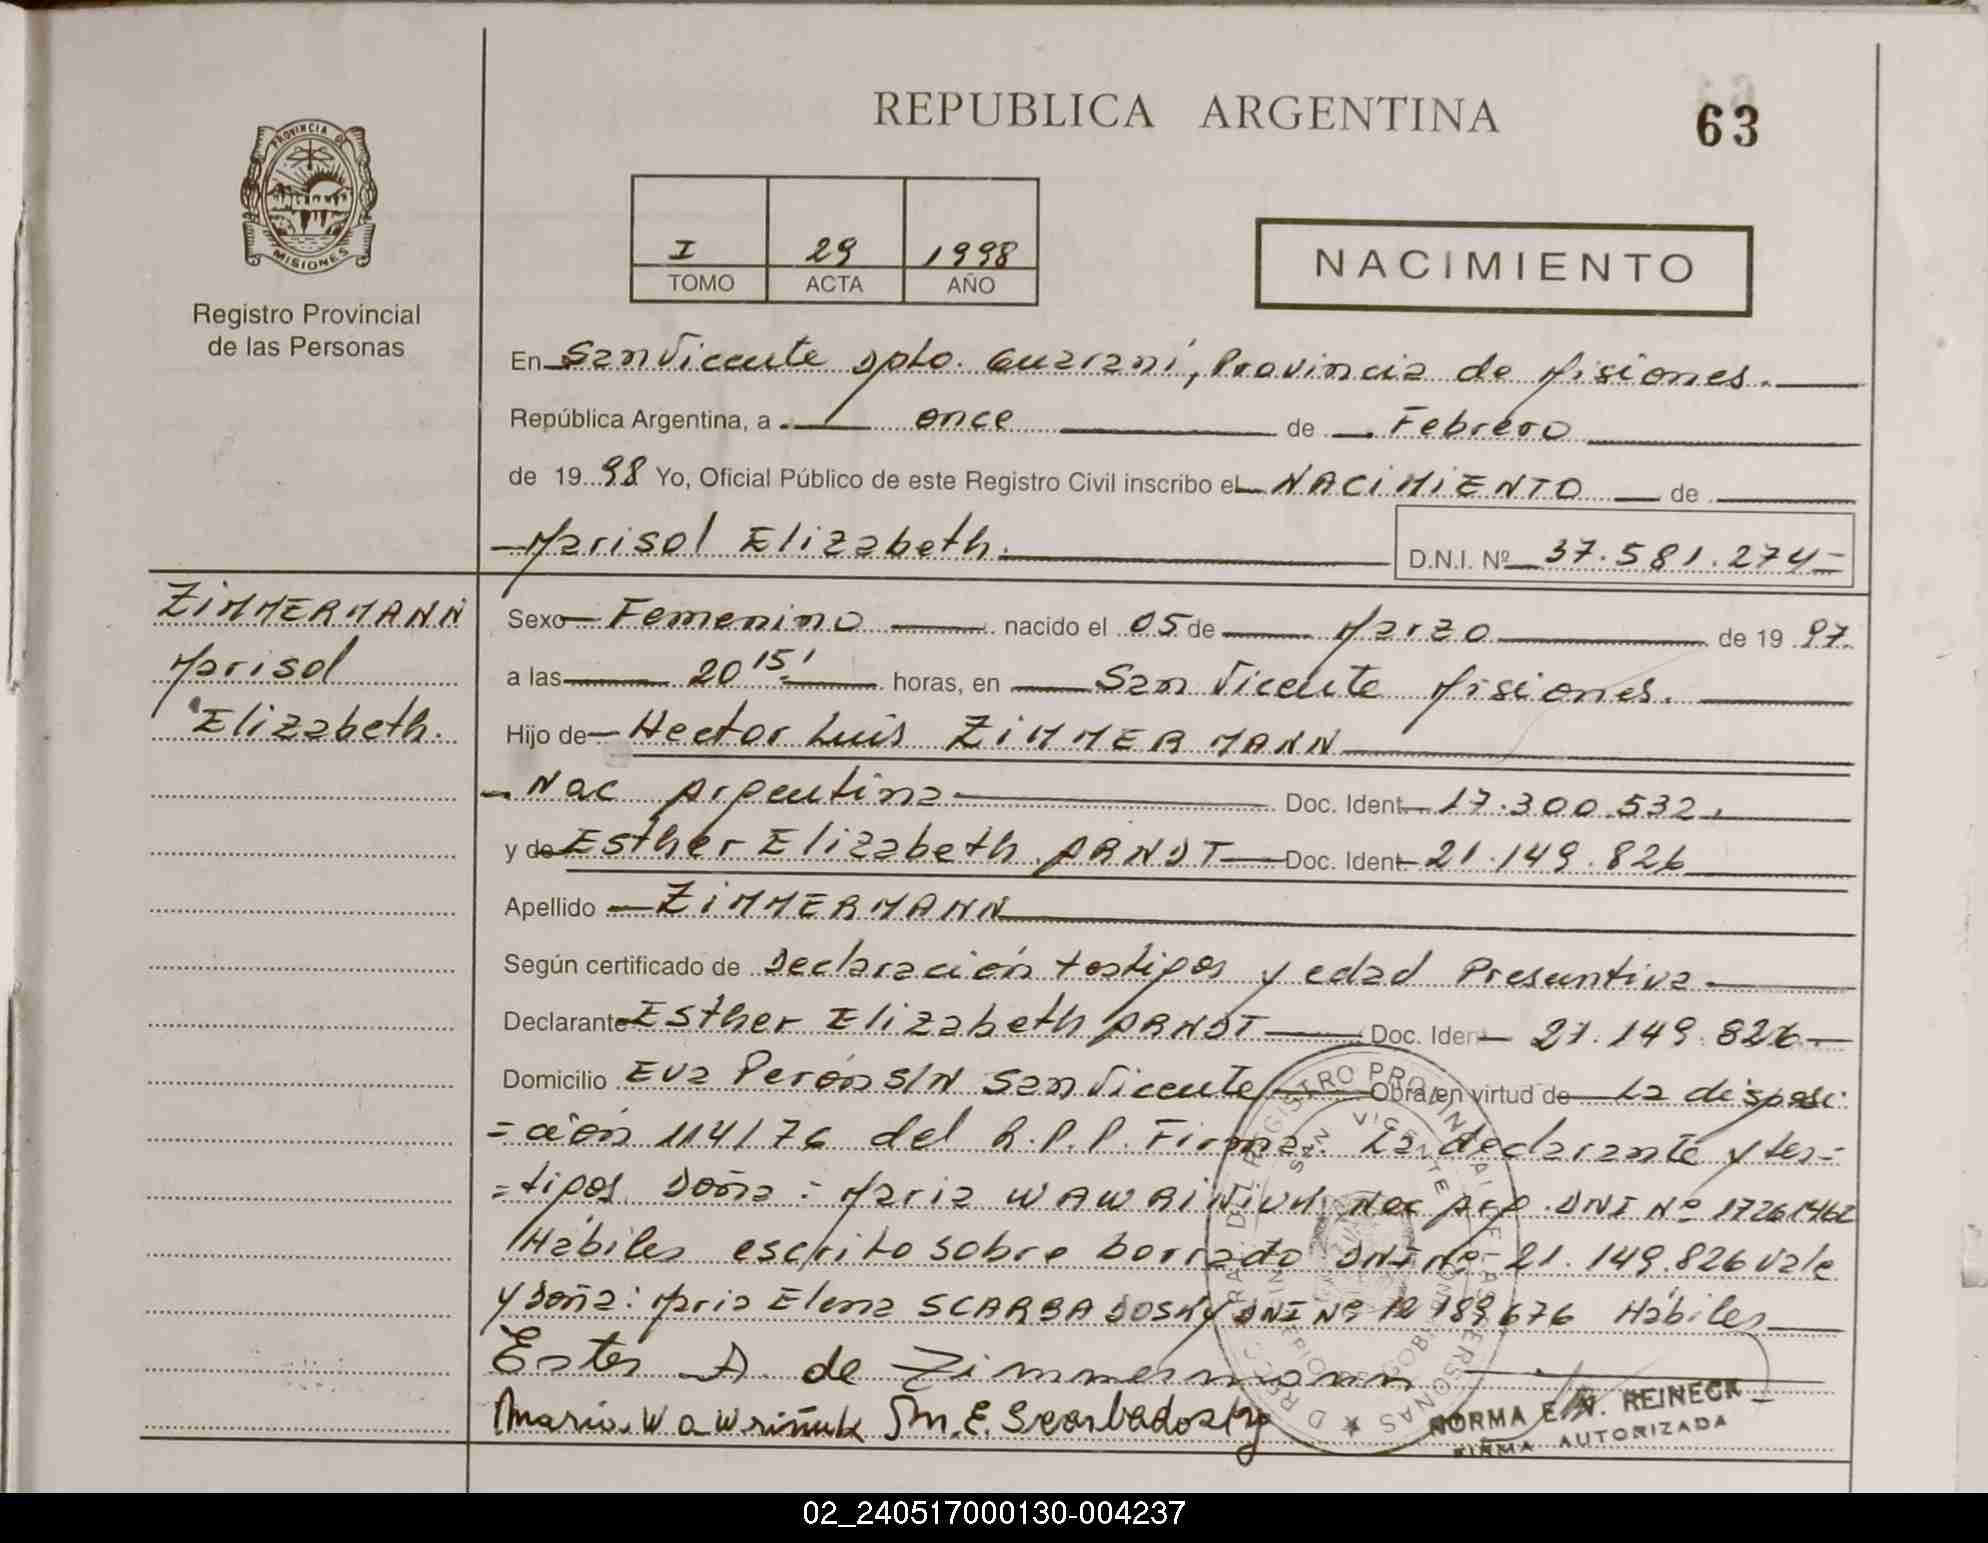 REPUBLICA ARGENTINA
63
PROVINCIA DE
MISIONES
Registro Provincial
de las Personas
I 29 1998
TOMO ACTA AÑO
NACIMIENTO
En San Vicente Dpto. Guaraní, Provincia de Misiones.
República Argentina, a once de Febrero
de 1998 Yo, Oficial Público de este Registro Civil inscribo el NACIMIENTO de
Marisol Elizabeth.
D.N.I. Nº 37.581.274
ZIMMERMANN
Marisol
Elizabeth.
Sexo Femenino nacido el 05 de Marzo de 1997.
a las 20 15' horas, en San Vicente Misiones.
Hijo de Hector Luis ZIMMERMANN
Nac Argentina Doc. Ident. 17.300.532.
y de Esther Elizabeth ARNDT Doc. Ident. 21.149.826
Apellido ZIMMERMANN
Según certificado de Declaración testigos y edad Presuntiva
Declarante Esther Elizabeth ARNDT Doc. Ident 21.149.826
Domicilio Eva Perón S/N San Vicente Obra en virtud de La disposi
=ción 114/76 del R.P.P. Firma: La declarante y tes=
=tigos Doña: Maria WAWRINIUK Nac Arg. DNI Nº 17261462
Hábiles escrito sobre borrado DNI Nº 21.149.826 vale
y Doña: Maria Elena SCARBADOSKY DNI Nº 12189676 Hábiles
Ester A. de Zimmermann
Maria Wawriñuk M.E. Scarbadosky
NORMA E. N. REINECK
FIRMA AUTORIZADA
02_240517000130-004237